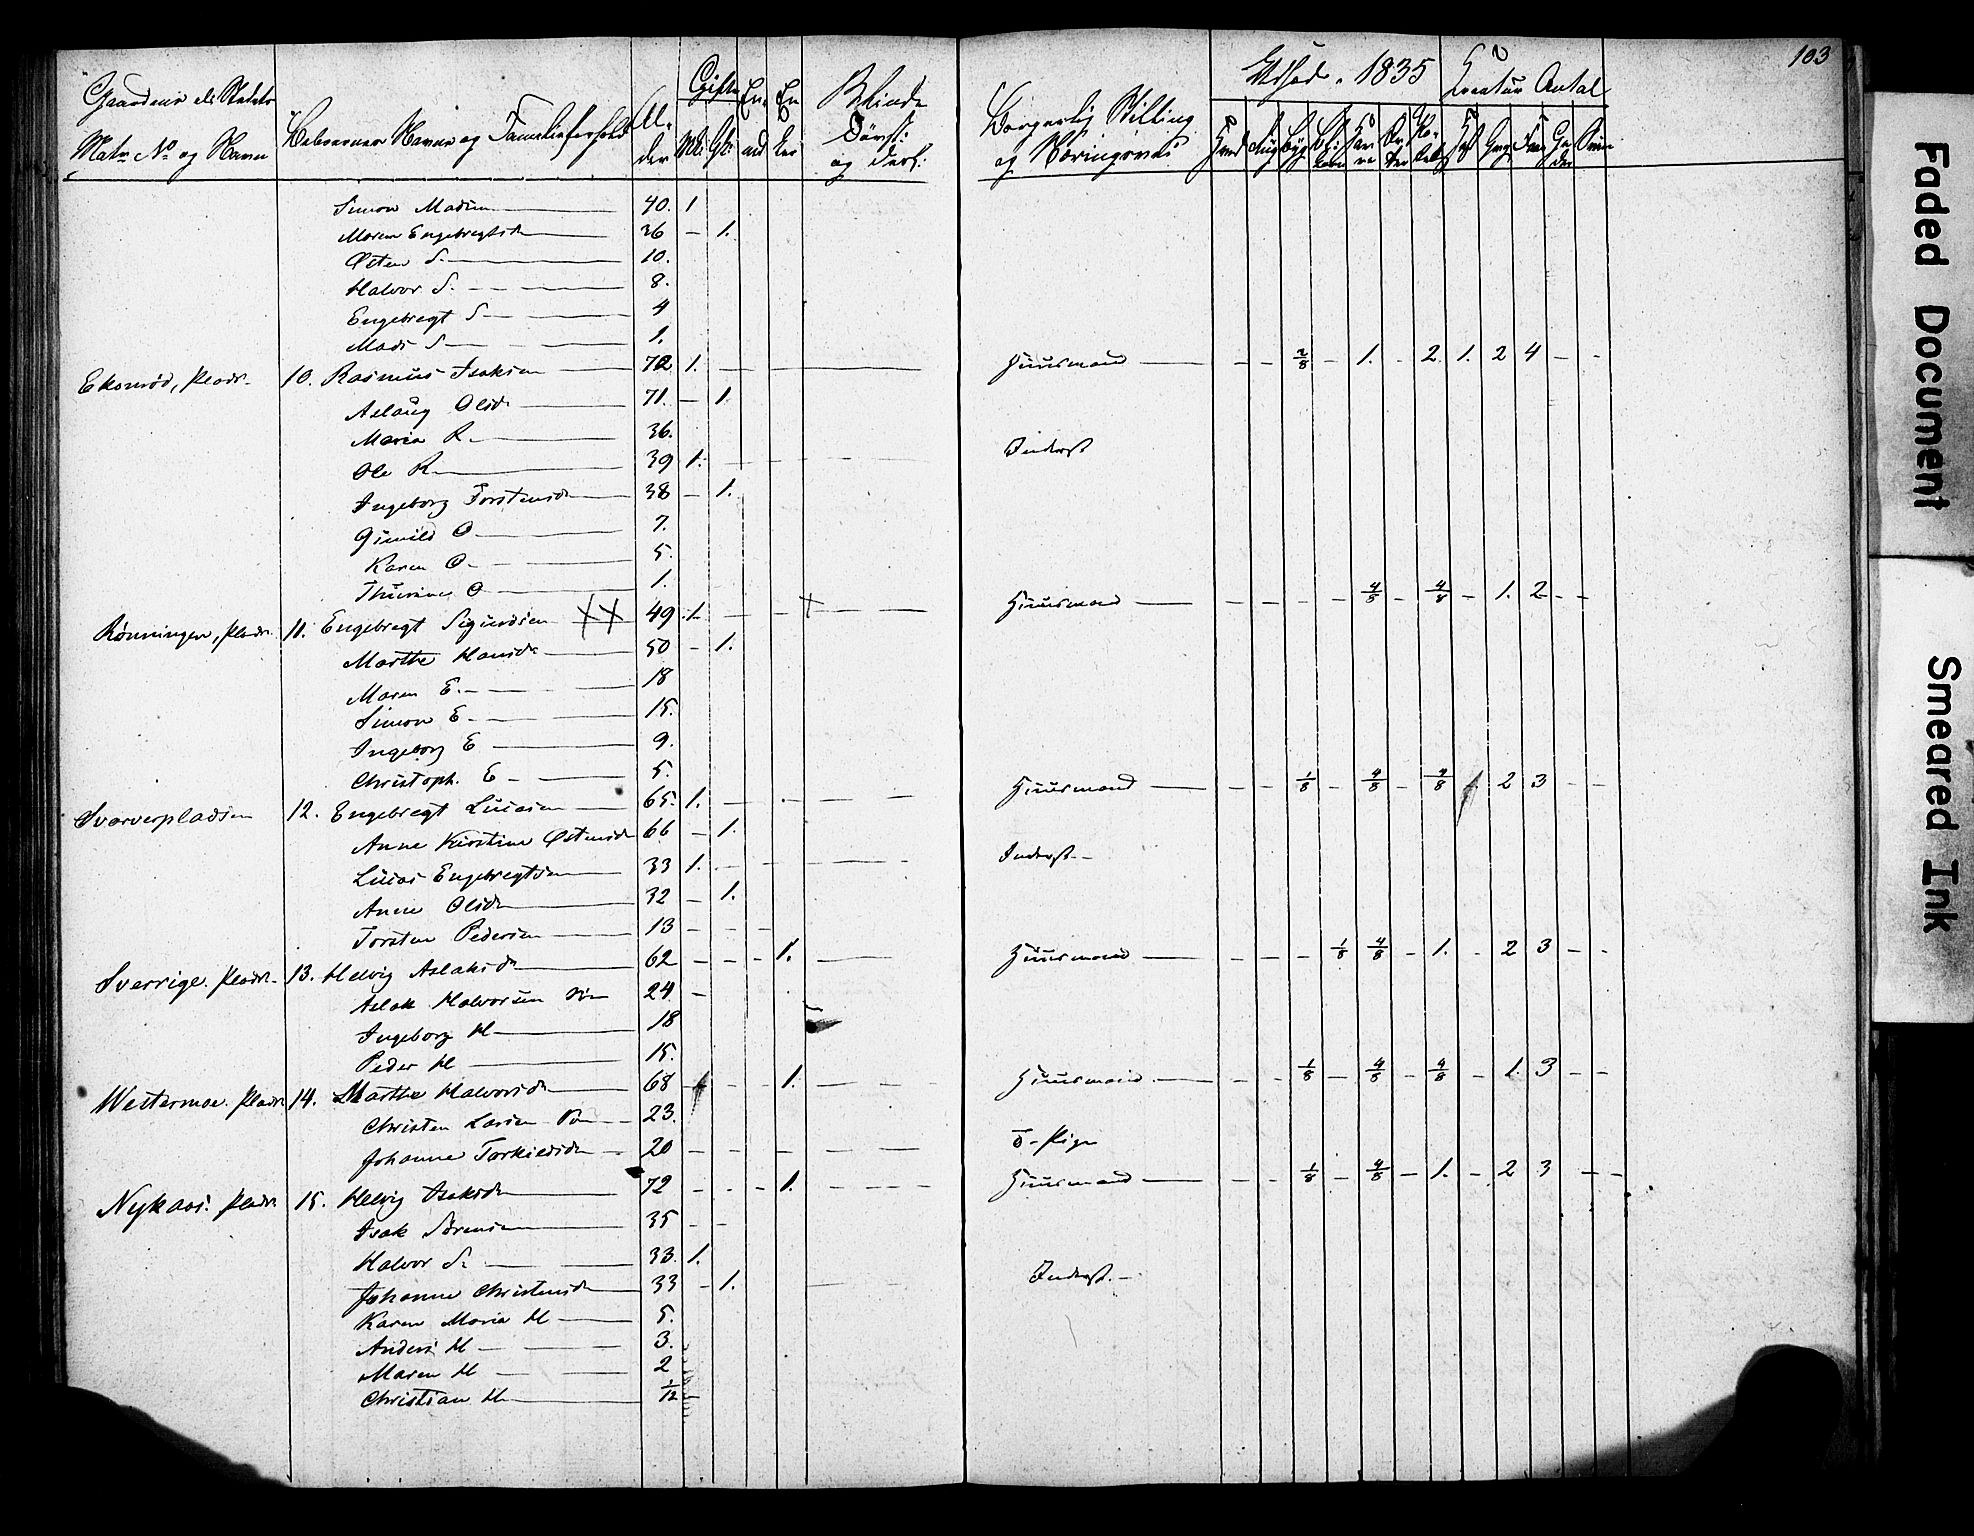 103
Gaardens ell. Stedets Matr. No og Navn | Beboernes Navne og Familieforhold | Al-der | Gifte Mk. Qk. | En-| En-ker | Blinde Døvst: og | Borgerlig Stilling og Næringsvei | Udsæd. 1835 | Creatur Antal
Simon Madsen 40. 1
Maren Engebregtsd 36 - 1.
Østen S. 10.
Halvor S. 8.
Engebregt S 4
Mads S 1.
Ekornrød, Plads. 10. Rasmus Isaksen 72 1. Huusmand 2/8 - 1. - 2. 1. 2 4 - -
Aslaug Olsd. 71. - 1.
Maria R. 36.
Ole R. 39 1. Inderst
Ingeborg Torstensd 38 - 1.
Gunild O 7.
Karen O. 5.
Thurine O 1.
Rønningen, Plads. 11. Engebregt Sigurdsen XX 49 1. X Huusmand 4/8 - 4/8 - 1. 2 - -
Marthe Hansd. 50 - 1.
Maren E. 18
Simon E. 15.
Ingeborg E 9.
Christoph. E 5.
Svarverpladsen 12. Engebregt Lucasen 65. 1. Huusmand 1/8 - 4/8 - 4/8 2 3 - -
Anne Kirstine Østensd 66 - 1.
Lucas Engebregtsen 33 1. Inderst
Anne Olsd. 32 - 1.
Torsten Pedersen 13
Sverrige. Plads. 13. Helvig Aslaksd. 62 - - - 1. Huusmand 1/8 4/8 - 1. - 2 3 - -
Aslak Halvorsen Søn 24 -
Ingeborg H 18
Peder H 15.
Westermoe. Plads. 14. Marthe Halvorsd. 68 1. Huusmand 1/8 - 4/8 - 4/8 - 1. 3 - -
Christen Larsen Søn 23.
Johanne Torkildsd. 20 T. Pige
Nykaas: Plads. 15. Helvig Isaksd. 72 - - - 1. Huusmand 1/8 - 4/8 - 1. - 2 3 - -
Isak Sørensen 35 - -
Halvor S. 33. 1. Inderst.
Johanne Christensd 33 - 1.
Karen Maria H 5.
Anders H 3.
Maren H 2
Christian H 1/12
Faded Document
Smeared Ink